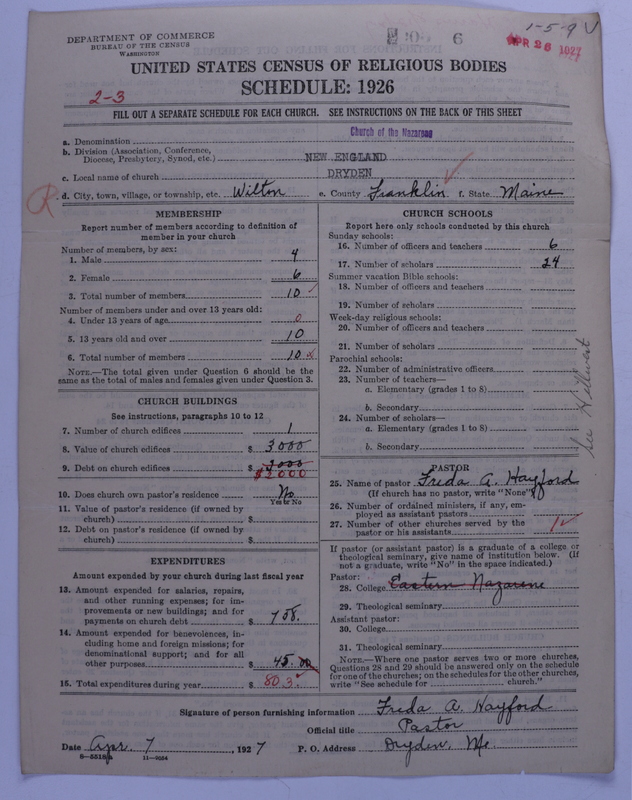 1-5-9 V
DEPARTMENT OF COMMERCE
BUREAU OF THE CENSUS
WASHINGTON
6
APR 26 1927
UNITED STATES CENSUS OF RELIGIOUS BODIES
SCHEDULE: 1926
2-3
FILL OUT A SEPARATE SCHEDULE FOR EACH CHURCH. SEE INSTRUCTIONS ON THE BACK OF THIS SHEET
a. Denomination Church of the Nazarene
b. Division (Association, Conference,
Diocese, Presbytery, Synod, etc.) NEW ENGLAND
c. Local name of church DRYDEN
R
d. City, town, village, or township, etc. Wilton e. County Franklin f. State Maine
MEMBERSHIP
Report number of members according to definition of
member in your church
Number of members, by sex:
1. Male 4
2. Female 6
3. Total number of members 10
Number of members under and over 13 years old:
4. Under 13 years of age 0
5. 13 years old and over 10
6. Total number of members 10
NOTE.—The total given under Question 6 should be the
same as the total of males and females given under Question 3.
CHURCH BUILDINGS
See instructions, paragraphs 10 to 12
7. Number of church edifices 1
8. Value of church edifices $ 3000
9. Debt on church edifices $ 3000
$2000
10. Does church own pastor's residence No
Yes or No
11. Value of pastor's residence (if owned by
church) $
12. Debt on pastor's residence (if owned by
church) $
EXPENDITURES
Amount expended by your church during last fiscal year
13. Amount expended for salaries, repairs,
and other running expenses; for im-
provements or new buildings; and for
payments on church debt $ 758.
14. Amount expended for benevolences, in-
cluding home and foreign missions; for
denominational support; and for all
other purposes $ 45.00
15. Total expenditures during year $ 803
CHURCH SCHOOLS
Report here only schools conducted by this church
Sunday schools:
16. Number of officers and teachers 6
17. Number of scholars 24
Summer vacation Bible schools:
18. Number of officers and teachers
19. Number of scholars
Week-day religious schools:
20. Number of officers and teachers
21. Number of scholars
Parochial schools:
22. Number of administrative officers
23. Number of teachers—
a. Elementary (grades 1 to 8)
b. Secondary
24. Number of scholars—
a. Elementary (grades 1 to 8)
b. Secondary
See
PASTOR
25. Name of pastor Freda A. Hayford
(If church has no pastor, write "None")
26. Number of ordained ministers, if any, em-
ployed as assistant pastors
27. Number of other churches served by the
pastor or his assistants 1
If pastor (or assistant pastor) is a graduate of a college or
theological seminary, give name of institution below. (If
not a graduate, write "No" in the space indicated.)
Pastor:
28. College Eastern Nazarene
29. Theological seminary
Assistant pastor:
30. College
31. Theological seminary
NOTE.—Where one pastor serves two or more churches,
Questions 28 and 29 should be answered only on the schedule
for one of the churches; on the schedules for the other churches,
write "See schedule for church."
Signature of person furnishing information Freda A. Hayford
Official title Pastor
Date Apr. 7 1927 P. O. Address Dryden, Me.
8—5518a 11—9554